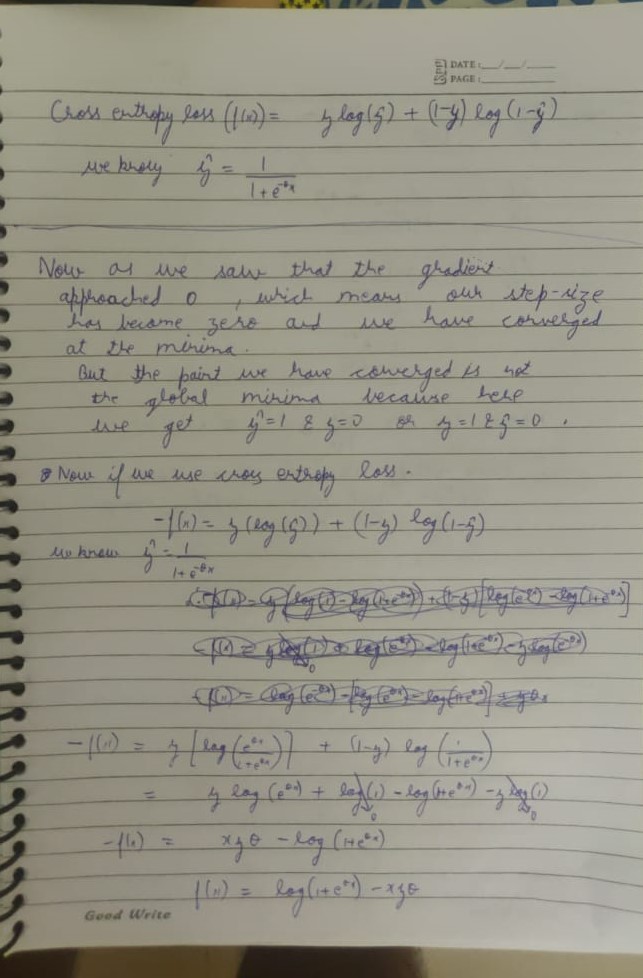 DATE: __/__/__
PAGE:
Cross entropy loss (f(x)) = y log(ŷ) + (1-y) log(1-ŷ)
we know ŷ = 1/(1+e^-θx)
Now as we saw that the gradient
approached 0, which means our step-size
has become zero and we have converged
at the minima.
But the point we have converged is not
the global minima because here
we get ŷ=1 & y=0 or y=1 & ŷ=0.
Now if we use cross entropy loss.
-f(x) = y(log(ŷ)) + (1-y) log(1-ŷ)
we know ŷ = 1/(1+e^-θx)
-f(x) = y[log(e^θx/(1+e^θx))] + (1-y) log(1/(1+e^θx))
= y log(e^θx) + log(1) - log(1+e^θx) - y log(1)
0 0
-f(x) = xyθ - log(1+e^θx)
f(x) = log(1+e^θx) - xyθ
Good Write